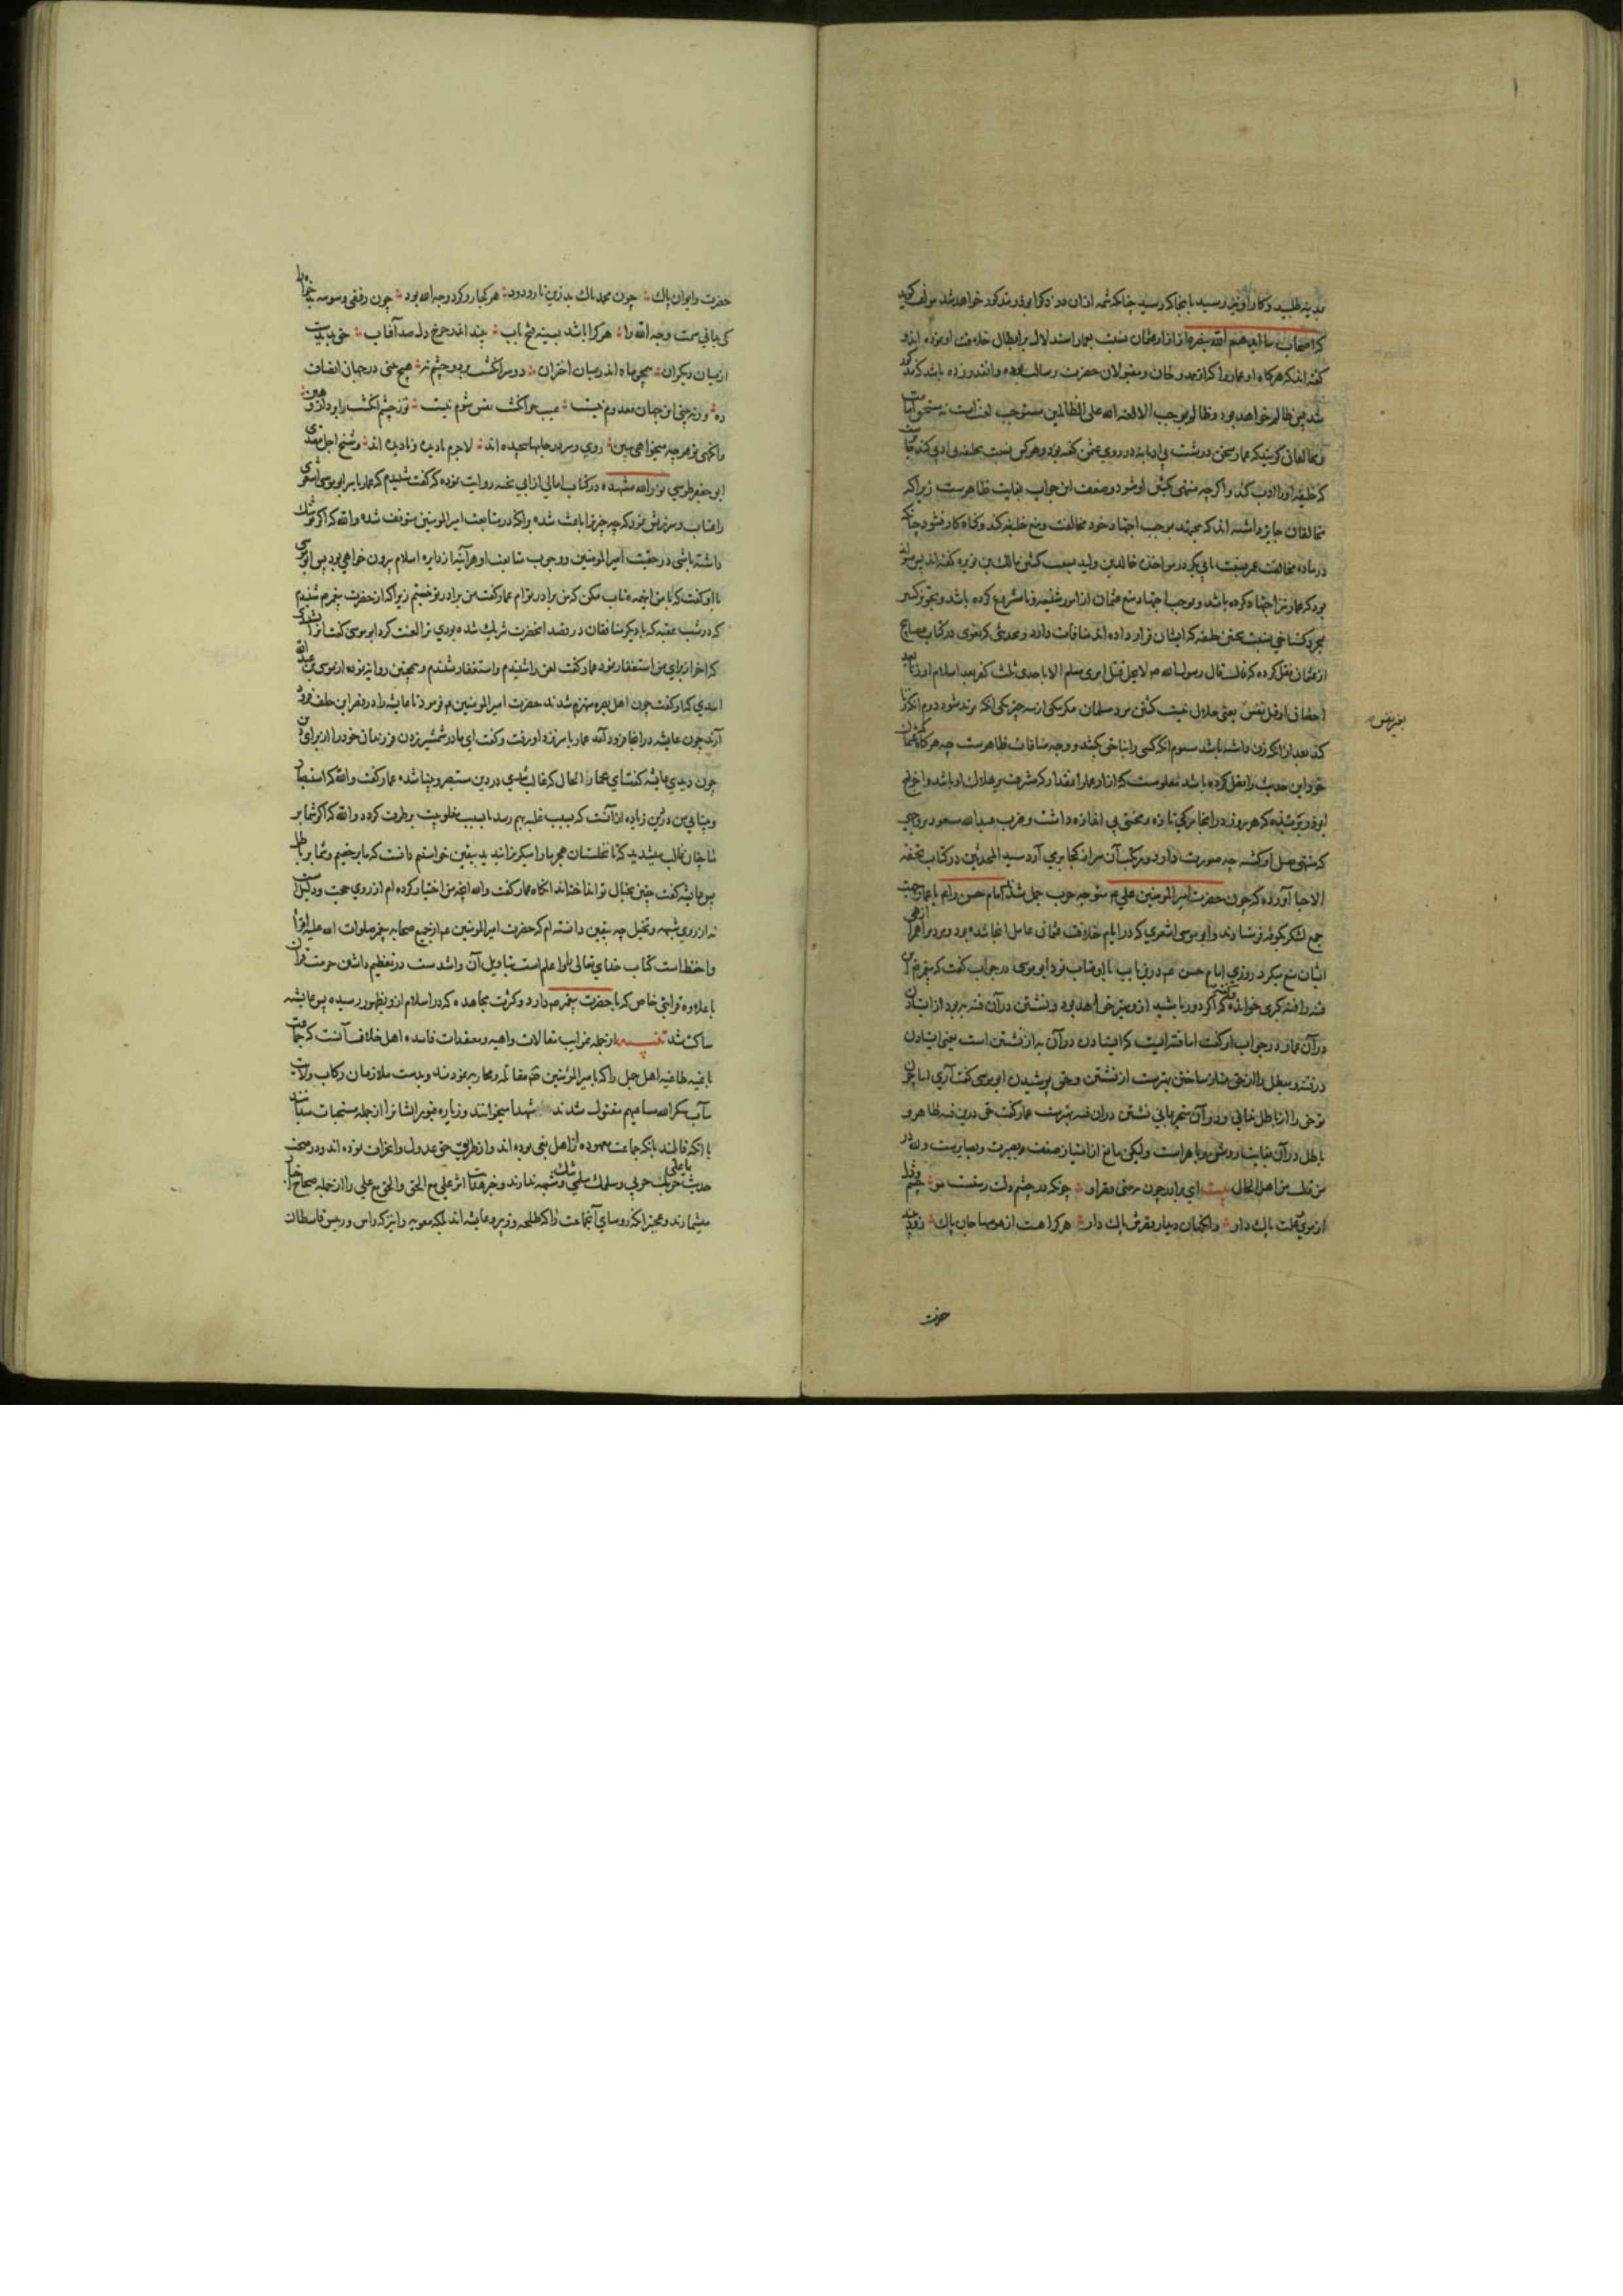 مدینه طلبید و کار او بدین رسید بانجا که رسید چنانکه شمه ازان در ذکر ابوذر مذکور خواهد شد مولف گوید
که اصحاب ما ایدهم الله بنصره از آزار عثمان نسبت بعمار استدلال بر ابطال خلافت او نموده اند و
گفته اند که هرگاه او عمار را که از ممدوحان و مقبولان حضرت رسالت بوده و اند زده باشد
شد پس ظالم خواهد بود و ظالم بموجب الا لعنة الله علی الظالمین مستوجب لعن است نه مستحق امامت
و مخالفان گویند که عمار سخن درشت بی ادبانه در روی عثمن گفته بود و هرکس نسبت بخلیفه بی ادبی کند
که خلیفه او را ادب کند و اگرچه منتهی بکشتن او شود و ضعف این جواب بغایت ظاهرست زیرا که
مخالفان جایز داشته اند که مجتهد بموجب اجتهاد خود مخالفت و منع خلیفه کند و گناه کار نشود چنانکه
در ماده مخالفت عمر نسبت بابی بکر در مواخذه خالد بن ولید بسبب کشتن مالک بن نویره گفته اند پس
بود که عمار نیز اجتهاد کرده باشد و بموجب اجتهاد منع عثمان از امور شنیعه نامشروع کرده باشد و تجویز کشتن
بمجرد گستاخی نسبت بعثمن خلیفه که ایشان قرار داده اند منافات دارد و بحدیثی که بغوی در کتاب مصابیح
از عثمان نقل کرده که قال قال رسول الله ص لا یحل قتل امری مسلم الا باحدی ثلث کفر بعد اسلام او زنا بعد
احصان او قتل نفس یعنی حلال نیست کشتن مرد مسلمان مگر یکی از سه چیز یکی انکه مرتد شود دوم انکه زنا
بغیر نفس
کند بعد از انکه زن داشته باشد سیوم انکه کسی را بناحق بکشد و وجه منافات ظاهرست چه هرگاه عثمان
خود این حدیث را نقل کرده باشد معلومست که آزار عمار آنقدر که مشرف بر هلاک او باشد و اخراج
ابوذر بربذه که هر روز در انجا مرگی تازه و محنتی بی اندازه داشت و ضرب عبدالله مسعود بروجهی
که منتهی بقتل او گشته چه صورت دارد و مرتکب آن سر از کجا بر می آورد سید المحدثین در کتاب تحفه
الاحبا آورده که چون حضرت امیر المومنین علی ع متوجه حرب جمل شد امام حسن را ع با عمار بجهت
جمع لشکر بکوفه فرستادند و ابو موسی اشعری که در ایام خلافت عثمان عامل انجا شده بود مردم را از همراهی
ایشان منع میکرد روزی امام حسن ع درین باب با او عتاب نمود ابو موسی در جواب گفت که پیغمبر ص این
فتنه را فتنه کبری خوانده و گفته که اگر دور باشید ازو بهتر خواهد بود و نشستن در آن فتنه به بود از ایستادن
در آن عمار در جواب او گفت اما فتنه ایست که ایستادن در آن به از نشستن است یعنی ایستادن
در فتنه و مبطل را از حق متمایز ساختن بهترست از نشستن و حق پوشیدن ابو موسی گفت آری اما چون
تو حق را از باطل ندانی و در آن متحیر مانی نشستن در ان فتنه بهترست عمار گفت حق درین فتنه ظاهر و
باطل در آن بغایت روشن و باهراست ولیکن مانع از امتیاز ضعف بصیرت و بصارتست
من قلت من اهل الحال بیت ای برادر چون ببینی قصر او چونکه در چشم دلت رستست مو چشم
از موی علت پاک دار وانگهان دیدار قصرش پاک دار هرکرا هست از هوسها جان پاک زود بیند
حضرت
حضرت و ایوان پاک چون محمد پاک بد زین نار و دود هر کجا رو کرد وجه الله بود چون رفیقی وسوسه بدخواه را
کی بدانی سمت وجه الله را هر کرا باشد بسینه فتح باب بیند اندر چرخ دل صد آفتاب حق پدیدست
از میان دیگران همچو ماه اندر میان اختران دو سر انگشت بر دو چشم نه هیچ بینی در جهان انصاف
ده ورنه بینی این جهان معدوم نیست عیب جز انگشت نفس شوم نیست تو ز چشم انگشت را بردار هین
وانگهی تو هرچه میخواهی ببین روی و سر در جامها پیچیده اند لاجرم با دیده و نادیده اند و شیخ اجل سعدی
ابو جعفر طوسی نور الله مشهده در کتاب امالی از ابی نجیه روایت نموده که گفت شنیدم که عمار یاسر ابو موسی اشعری
را عتاب و سرزنش نمود که چه چیز ترا باعث شده و انکه در متابعت امیر المومنین متوقف شدی والله که اگر تو شک
داشته باشی در حقیت امیر المومنین و وجوب متابعت او هرآینه از دایره اسلام بیرون خواهی بود پس ابو موسی
با او گفت که با من اینهمه عتاب مکن که من برادر توام عمار گفت من برادر تو نیستم زیرا که از حضرت پیغمبر ص شنیدم
که در شب عقبه که با دیگر منافقان در قصد انحضرت شریک شده بودی ترا لعنت کرد ابو موسی گفت نشنیدی
که اخر از برای من استغفار نمود عمار گفت لعن را شنیدم و استغفار نشنیدم و همچنین روایه نموده از موسی بن عبدالله
اسدی که او گفت چون اهل بصره منهزم شدند حضرت امیر المومنین ع فرمود تا عایشه را در قصر ابن خلف فرود
آرند چون عایشه در انجا فرود آمد عمار یاسر نزد او رفت و گفت ای مادر شمشیر زدن فرزندان خود را از برای دین
چون دیدی عایشه گفت ای عمار الحال که غالب شدی در دین مستبصر و بینا شده عمار گفت والله که استبصار
و بینایی من در دین زیاده از آنست که بسبب غلبه بهم رسد یا بسبب مغلوبیت برطرف گردد والله که اگر شما بر
ما چنان غالب میشدید که تا نخلستان هجر ما را میگریزانیدید بیقین خواستیم دانست که ما بر حقیم و شما بر باطل
پس عایشه گفت چنین بخیال تو انداخته اند انگاه عمار گفت والله انچه من اختیار کرده ام از روی حجت و دلیل است
نه از روی شبهه و تخیل چه بیقین دانسته ام که حضرت امیر المومنین ع از جمیع صحابه پیغمبر صلوات الله علیه اقرأ
و احفظ است کتاب خدای تعالی را و اعلم است بتاویل آن و اشد ست در تعظیم داشتن حرمت قران
با علاوه قرابتی خاص که با حضرت پیغمبر ص دارد و کثرت مجاهده که در اسلام ازو بظهور رسیده پس عایشه
ساکت شد تنبیه از جمله غرایب مقالات واهیه و معتقدات فاسده اهل خلاف آنست که جماعت
باغیه طاغیه اهل جمل را که با امیر المؤمنین ع مقاتله و محاربه نمودند و بدست ملازمان رکاب ولایت
مآب شکر الله مساعیهم مقتول شدند شهدا میخوانند و زیاره قبور ایشانرا از جمله مستحبات میدانند
با انکه قائلند بانکه جماعت معهوده از اهل بغی بوده اند و از طریق حق عدول و اعراف نموده اند و در صحت
حدیث یا علی حربک حربی و سلمک سلمی شک و شبهه ندارند و خبر هدایت اثر علی مع الحق والحق مع علی را از جمله صحاح اخبار
میشمارند و همچنانکه روسای آنجماعت را که طلحه و زبیر و عایشه اند بلکه معویه را نیز که راس و رییس قاسطان